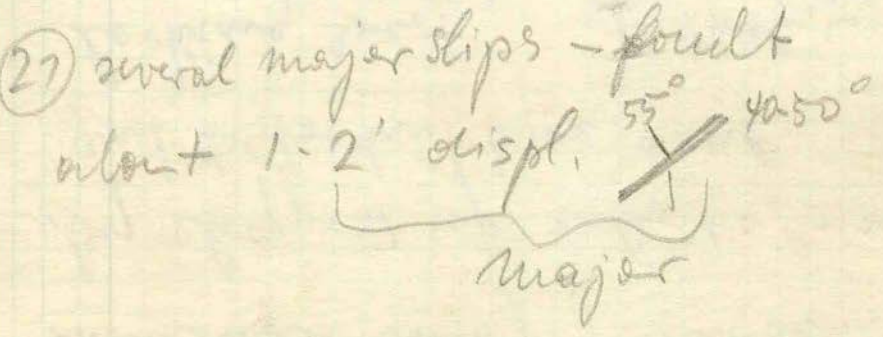 (21) several major slips - fault
about 1-2' displ. 55° 40-50°
major